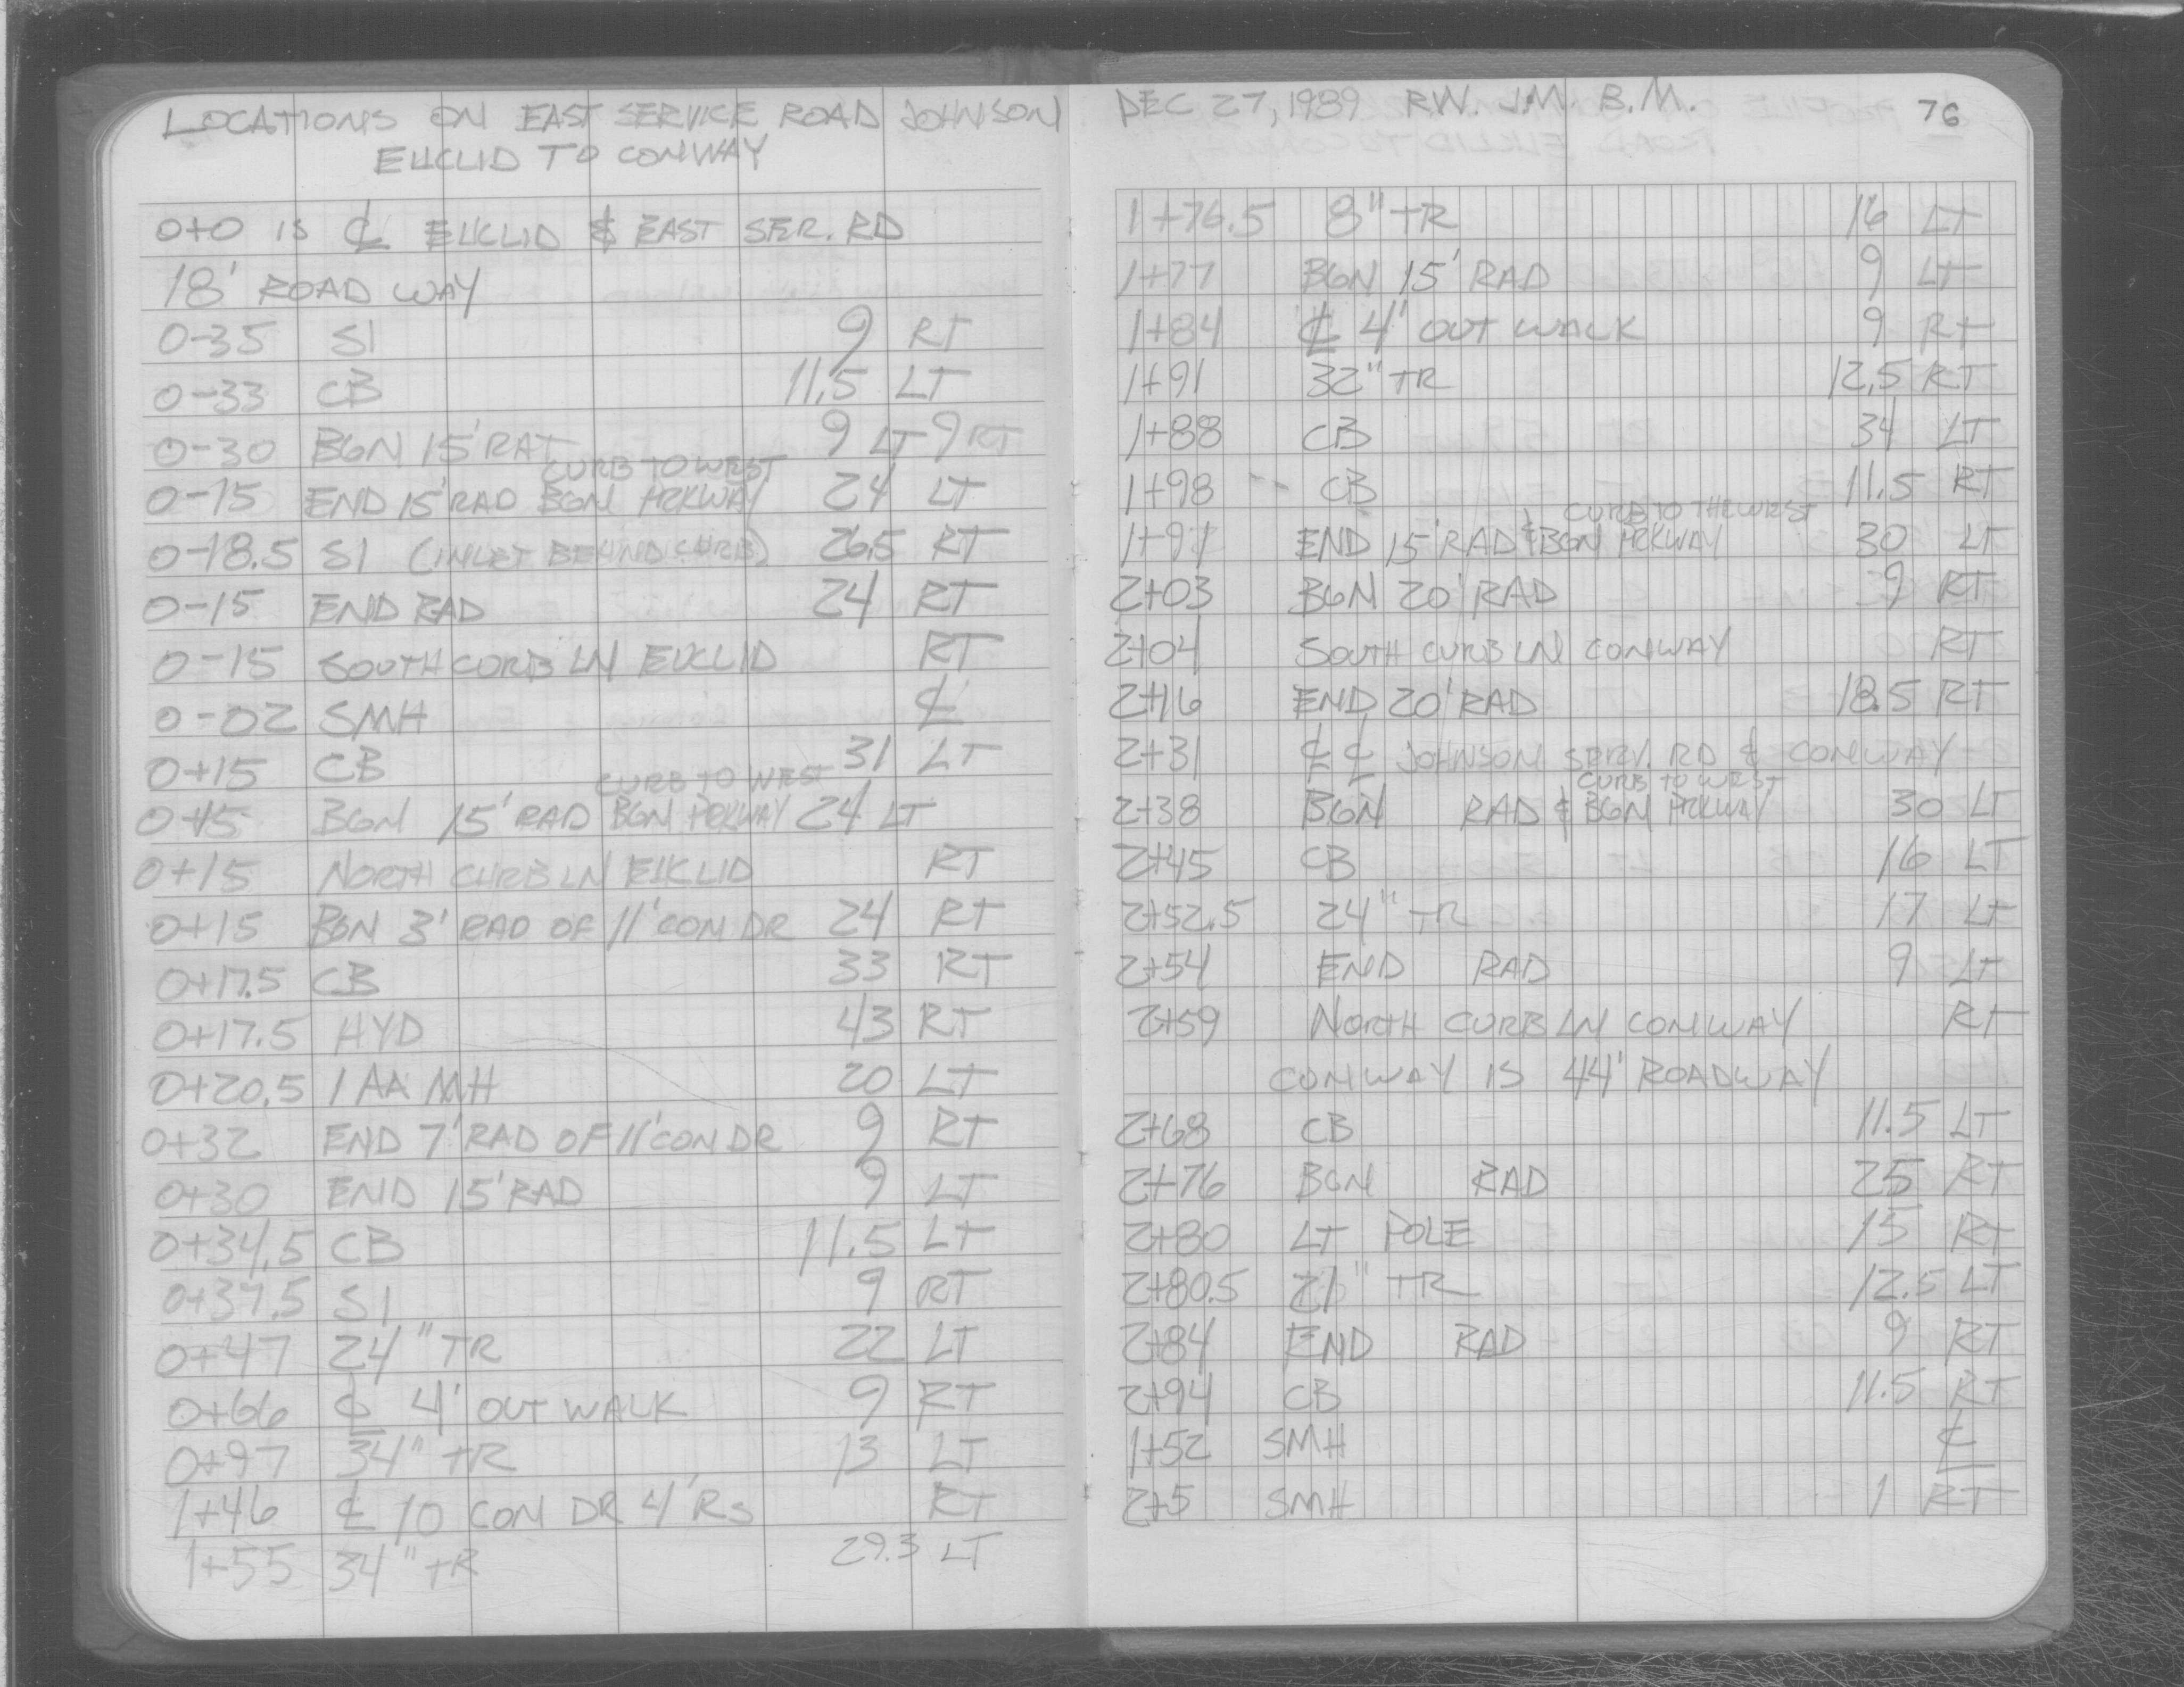 LOCATIONS ON EAST SERVICE ROAD JOHNSON
EUCLID TO CONWAY
0+0 IS ℄ EUCLID & EAST SER. RD
18' ROAD WAY
0-35 SI 9 RT
0-33 CB 11.5 LT
0-30 BGN 15' RAT 9 LT 9 RT
CURB TO WEST
0-15 END 15' RAD BGN PRKWAY 24 LT
0-18.5 SI (INLET BEHIND CURB) 26.5 RT
0-15 END RAD 24 RT
0-15 SOUTH CURB LN EUCLID RT
0-02 SMH ℄
0+15 CB 31 LT
CURB TO WEST
0+15 BGN 15' RAD BGN PRKWAY 24 LT
0+15 NORTH CURB LN EUCLID RT
0+15 BGN 3' RAD OF 11' CON DR 24 RT
0+17.5 CB 33 RT
0+17.5 HYD 43 RT
0+20.5 1 AA MH 20 LT
0+32 END 7' RAD OF 11' CON DR 9 RT
0+30 END 15' RAD 9 LT
0+34.5 CB 11.5 LT
0+37.5 SI 9 RT
0+47 24" TR 22 LT
0+66 ℄ 4' OUT WALK 9 RT
0+97 34" TR 13 LT
1+46 ℄ 10 CON DR 4' RS RT
1+55 34" TR 29.3 LT
DEC 27, 1989 R.W. J.M. B.M. 76
1+76.5 8" TR 16 LT
1+77 BGN 15' RAD 9 LT
1+84 ℄ 4' OUT WALK 9 RT
1+91 32" TR 12.5 RT
1+88 CB 34 LT
1+98 -- CB 11.5 RT
CURB TO THE WEST
1+91 END 15' RAD & BGN PRKWAY 30 LT
2+03 BGN 20' RAD 9 RT
2+04 SOUTH CURB LN CONWAY RT
2+16 END 20' RAD 18.5 RT
2+31 ℄ ℄ JOHNSON SERV. RD & CONWAY
CURB TO WEST
2+38 BGN RAD & BGN PRKWAY 30 LT
2+45 CB 16 LT
2+52.5 24" TR 17 LT
2+54 END RAD 9 LT
2+59 NORTH CURB LN CONWAY RT
CONWAY IS 44' ROADWAY
2+68 CB 11.5 LT
2+76 BGN RAD 25 RT
2+80 LT POLE 15 RT
2+80.5 21" TR 12.5 LT
2+84 END RAD 9 RT
2+94 CB 11.5 RT
1+52 SMH ℄
2+5 SMH 1 RT